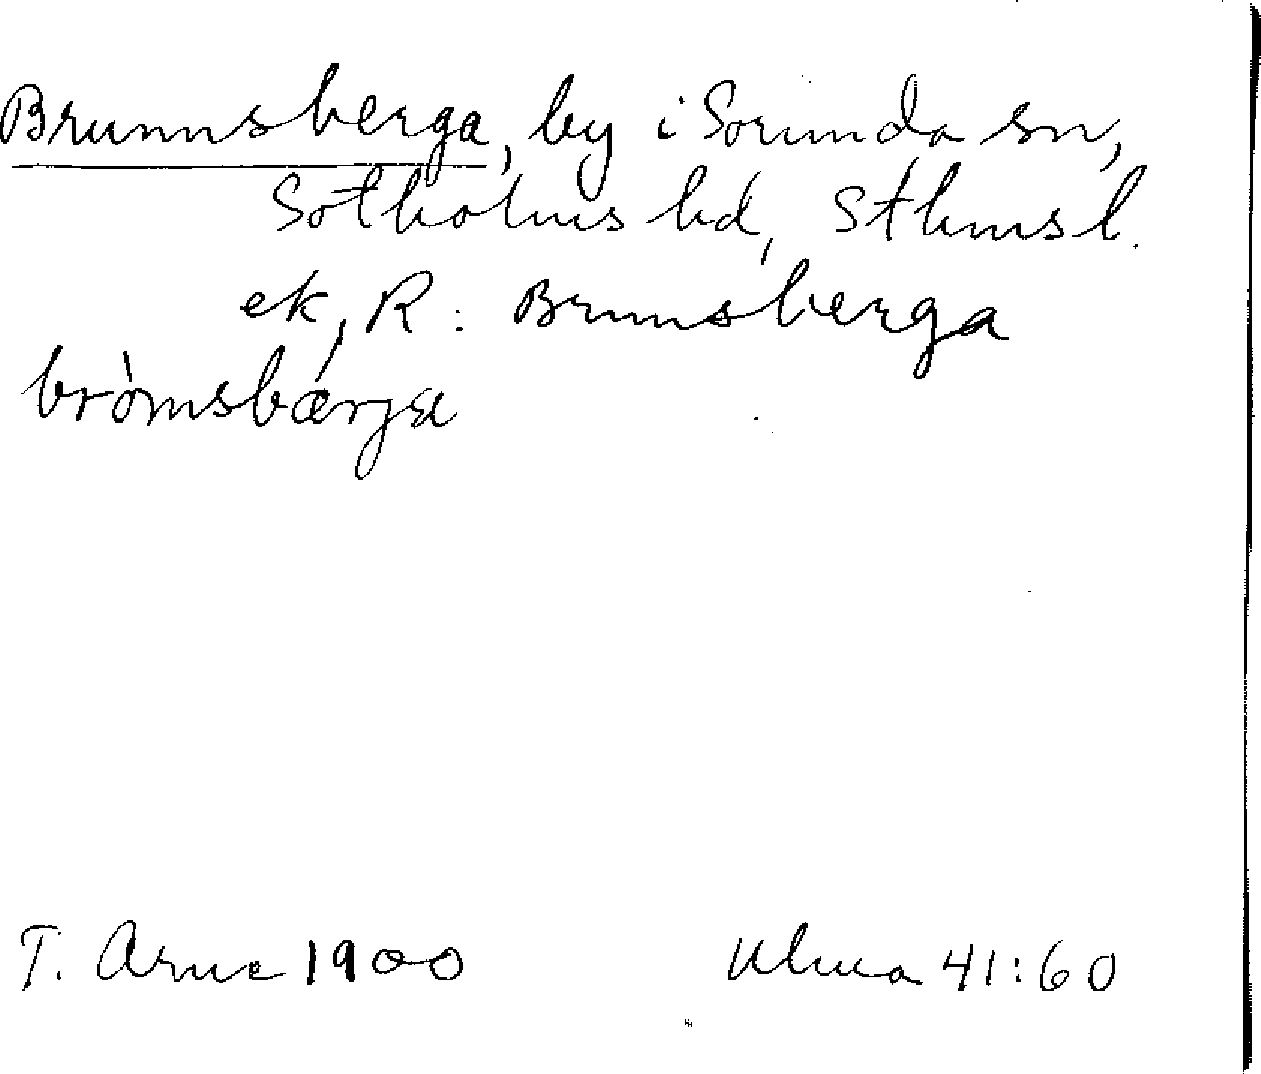 Brunnsberga, by i Sorunda sn,
Sotholms hd, Sthmsl.
ek, R: Brunsberga
bròmsbærja
T. Arne 1900 Ulma 41:60